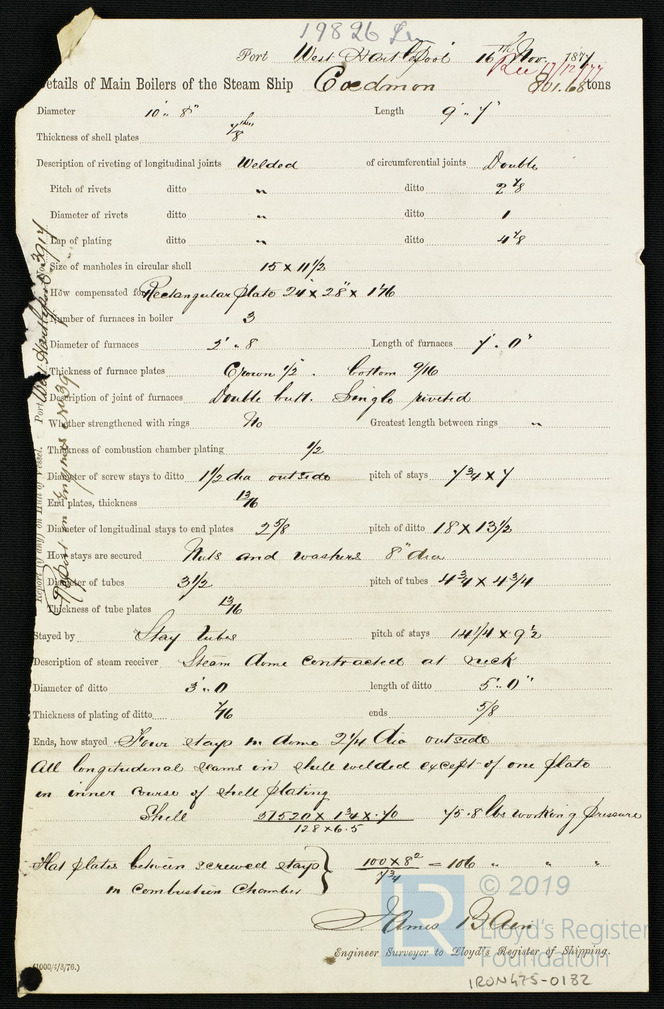 19826
Port West Hartlepool 16th Nov. 1877
Rec 17/12/77
Details of Main Boilers of the Steam Ship Coedmon 801.68 tons
Diameter 10' " 8" Length 9' " 7"
Thickness of shell plates 7/8ths
Description of riveting of longitudinal joints Welded of circumferential joints Double
Pitch of rivets ditto " ditto 2 7/8
Diameter of rivets ditto " ditto 1
Lap of plating ditto " ditto 4 7/8
Size of manholes in circular shell 15 x 11 1/2
How compensated for Rectangular plate 24" x 28" x
Number of furnaces in boiler 3
Diameter of furnaces 2' " 8 Length of furnaces 7' . 0"
Thickness of furnace plates Crown 1/2 . bottom 9/16
Description of joint of furnaces Double butt. Single riveted
Whether strengthened with rings No Greatest length between rings "
Thickness of combustion chamber plating 1/2
Diameter of screw stays to ditto 1 1/2 dia outside pitch of stays 7 3/4 x 7
End plates, thickness 13/16
Diameter of longitudinal stays to end plates 2 5/8 pitch of ditto 18 x 13 1/2
How stays are secured Nuts and washers 8" dia
Diameter of tubes 3 1/2 pitch of tubes 4 3/4 x 4 3/4
Thickness of tube plates 13/16
Stayed by Stay tubes pitch of stays 14 1/4 x 9 1/2
Description of steam receiver Steam dome contracted at neck
Diameter of ditto 3' " 0 length of ditto 5' " 0"
Thickness of plating of ditto 7/16 ends 5/8
Ends, how stayed Four stays in dome 2 1/4 dia outside
All longitudinal seams in shell welded except of one plate
in inner course of shell plating
Shell 51520 x 1 3/4 x .70 75.8 lbs working pressure
128 x 6.5
Flat plates between screwed stays } 100 x 8² = 106 " " "
in Combustion Chamber 7 3/4
James Bain
Engineer Surveyor to Lloyd's Register of Shipping.
(1000/4/3/76.)
IRON475-0182
Report (if any) on Hull of Vessel. Port West Hartlepool No 3914
Report on Engines No 39
LR © 2019
Lloyd's Register
Foundation